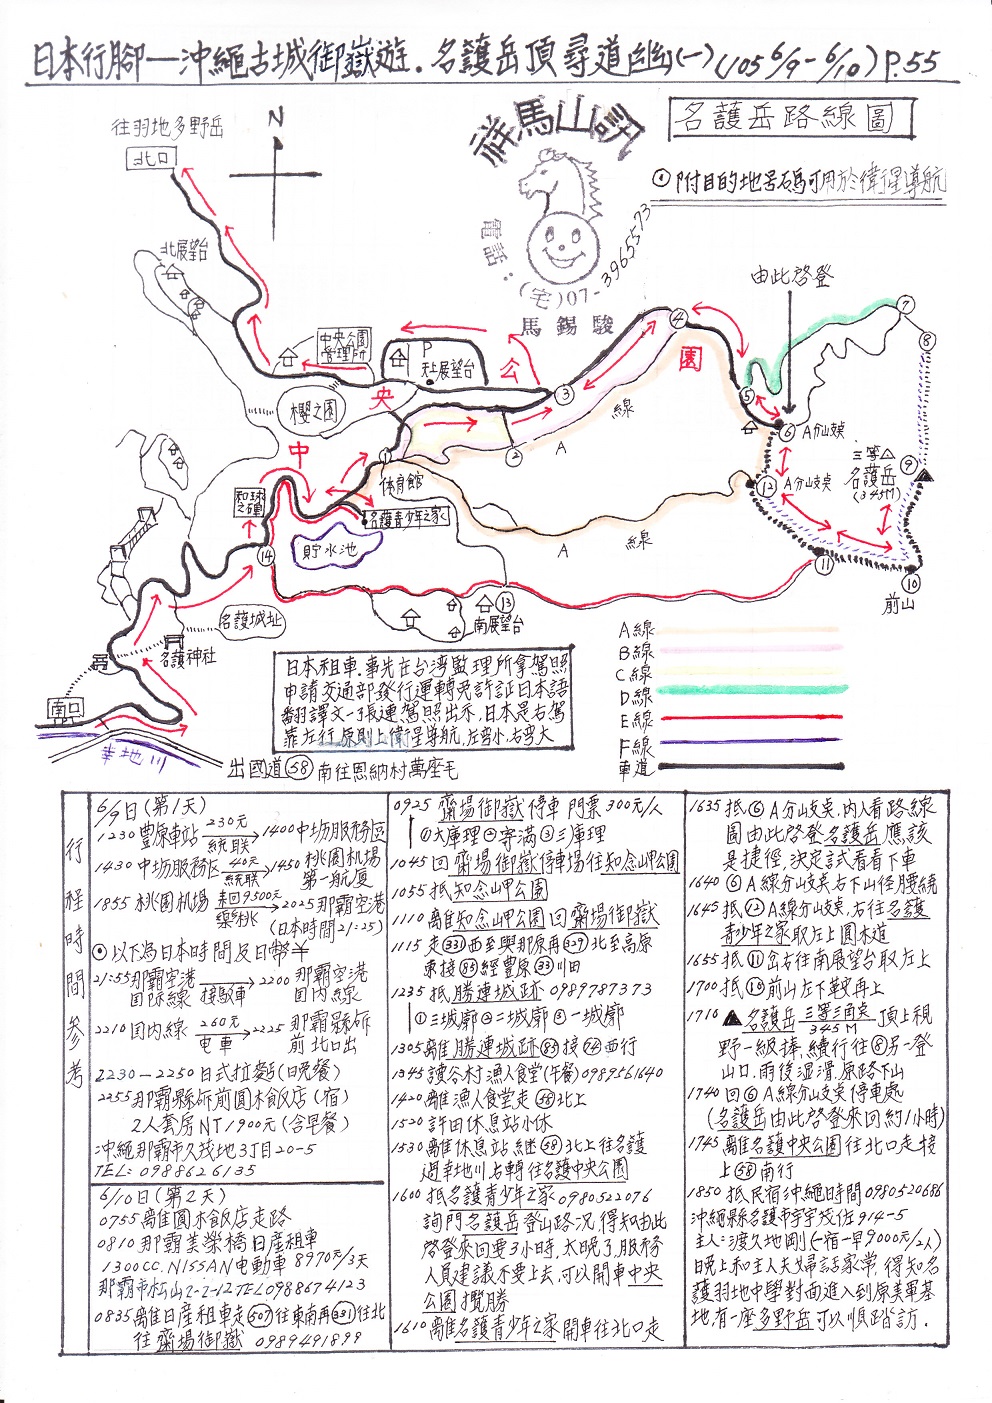 日本行腳—沖繩古城御嶽遊.名護岳頂尋道幽(一)(105 6/9-6/10)P.55
名護岳路線圖
⊙附目的地号碼可用於衛星導航
祥馬山訊
電話:(宅)07-3965573
馬錫駿
N
往羽地多野岳
北口
北展望台
中央公園
管理所
P
天上展望台
櫻之園
中央公園
由此啓登
①
②
③
④
⑤
⑥ A分山支奌
⑦
⑧
⑨
三等△
名護岳
(345M)
⑩
前山
⑪
⑫ A分山支奌
⑬
南展望台
⑭
A
線
A
線
体育館
名護青少年之家
貯水池
和球
之碑
名護城址
名護神社
南口
幸地川
出國道58南往恩納村萬座毛
日本租車.事先在台湾監理所拿駕照
申請交通部發行運轉免許証日本語
翻譯文一張連駕照出示,日本是右駕
靠左行原則上衛星導航,左弯小右弯大
A線
B線
C線
D線
E線
F線
車道
行程時間參考
6/9日(第1天)
1230豊原車站 230元 統联 1400中坊服務區
1430中坊服務区 40元 統联 1450桃園机場第一航厦
1855桃園机場 来回9500元 樂桃 2025那霸空港(日本時間21:25)
⊙以下為日本時間及日幣¥
21:55那霸空港国际線 接駁車 2200那霸空港国内線
2210国内線 260元 电車 2225那霸縣斫前北口出
2230-2250日式拉麪(晚餐)
2255那霸縣斫前圓木飯店(宿)
2人套房NT1900元(含早餐)
沖繩那霸市久茂地3丁目20-5
TEL:0988626135
6/10日(第2天)
0755離圓木飯店走路
0810那霸美榮橋日産租車
1300CC.NISSAN电動車8970元/3天
那霸市松山2-2-12TEL0988674123
0835離日産租車走507往東南再331往北
往齋場御嶽 0989491899
0925齋場御嶽停車 門票300元/人
①大庫理②寄滿③三庫理
1045回齋場御嶽停車場往知念岬公園
1055抵知念岬公園
1110離知念岬公園回齋場御嶽
1115走331西至與那原再329北至高原
東接85經豊原33川田
1235抵勝連城跡0989787373
①三城廓②二城廓③一城廓
1305離勝連城跡85接74西行
1345讀谷村漁人食堂(午餐)0989561640
1420離漁人食堂走58北上
1520許田休息站小休
1530離休息站継58北上往名護
過幸地川右轉往名護中央公園
1600抵名護青少年之家0980522076
詢門名護岳登山路况,得知由此
啓登來回要3小時,太晚了,服務
人員建議不要上去,可以開車中央
公園攬勝
1610離名護青少年之家開車往北口走
1635抵⑥A分山支奌,内入看路線
圖由此啓登名護岳應該
是捷徑,決定試看看下車
1640⑥A線分山支奌右下山径腰繞
1645抵⑫A線分山支奌,右往名護
青少年之家取左上圓木道
1655抵⑪岔右往南展望台取左上
1700抵⑩前山左下鞍再上
1710▲名護岳三等三角奌345M頂上視
野一級捧,續行往⑧另一登
山口,雨後湿滑,原路下山
1740回⑥A線分山支奌停車處
(名護岳由此啓登來回約1小時)
1745離名護中央公園往北口走接
上58南行
1850抵民宿沖繩時間0980520686
沖繩縣名護市宇宇茂佐914-5
主人:渡久地剛(一宿一早9000元/2人)
晚上和主人夫婦話家常,得知名
護羽地中學對面進入到原美軍基
地,有一座多野岳可以順踏訪.